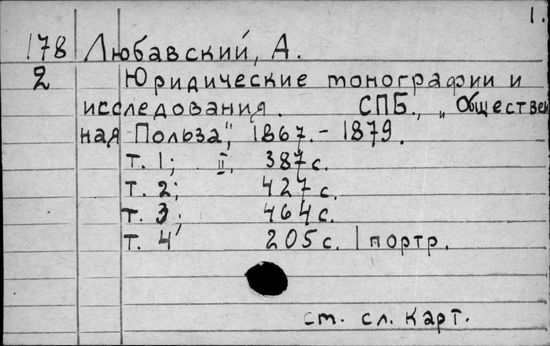 1.
178 Любавский, А.
2 Юридические монографии и
исследования. СПБ., „Обществен
ная Польза", 1867.-1879.
т. 1; II, 387 с.
т. 2; 427 с.
т. 3; 464 с.
т. 4 205 с. 1 портр.
ст. сл. карт.